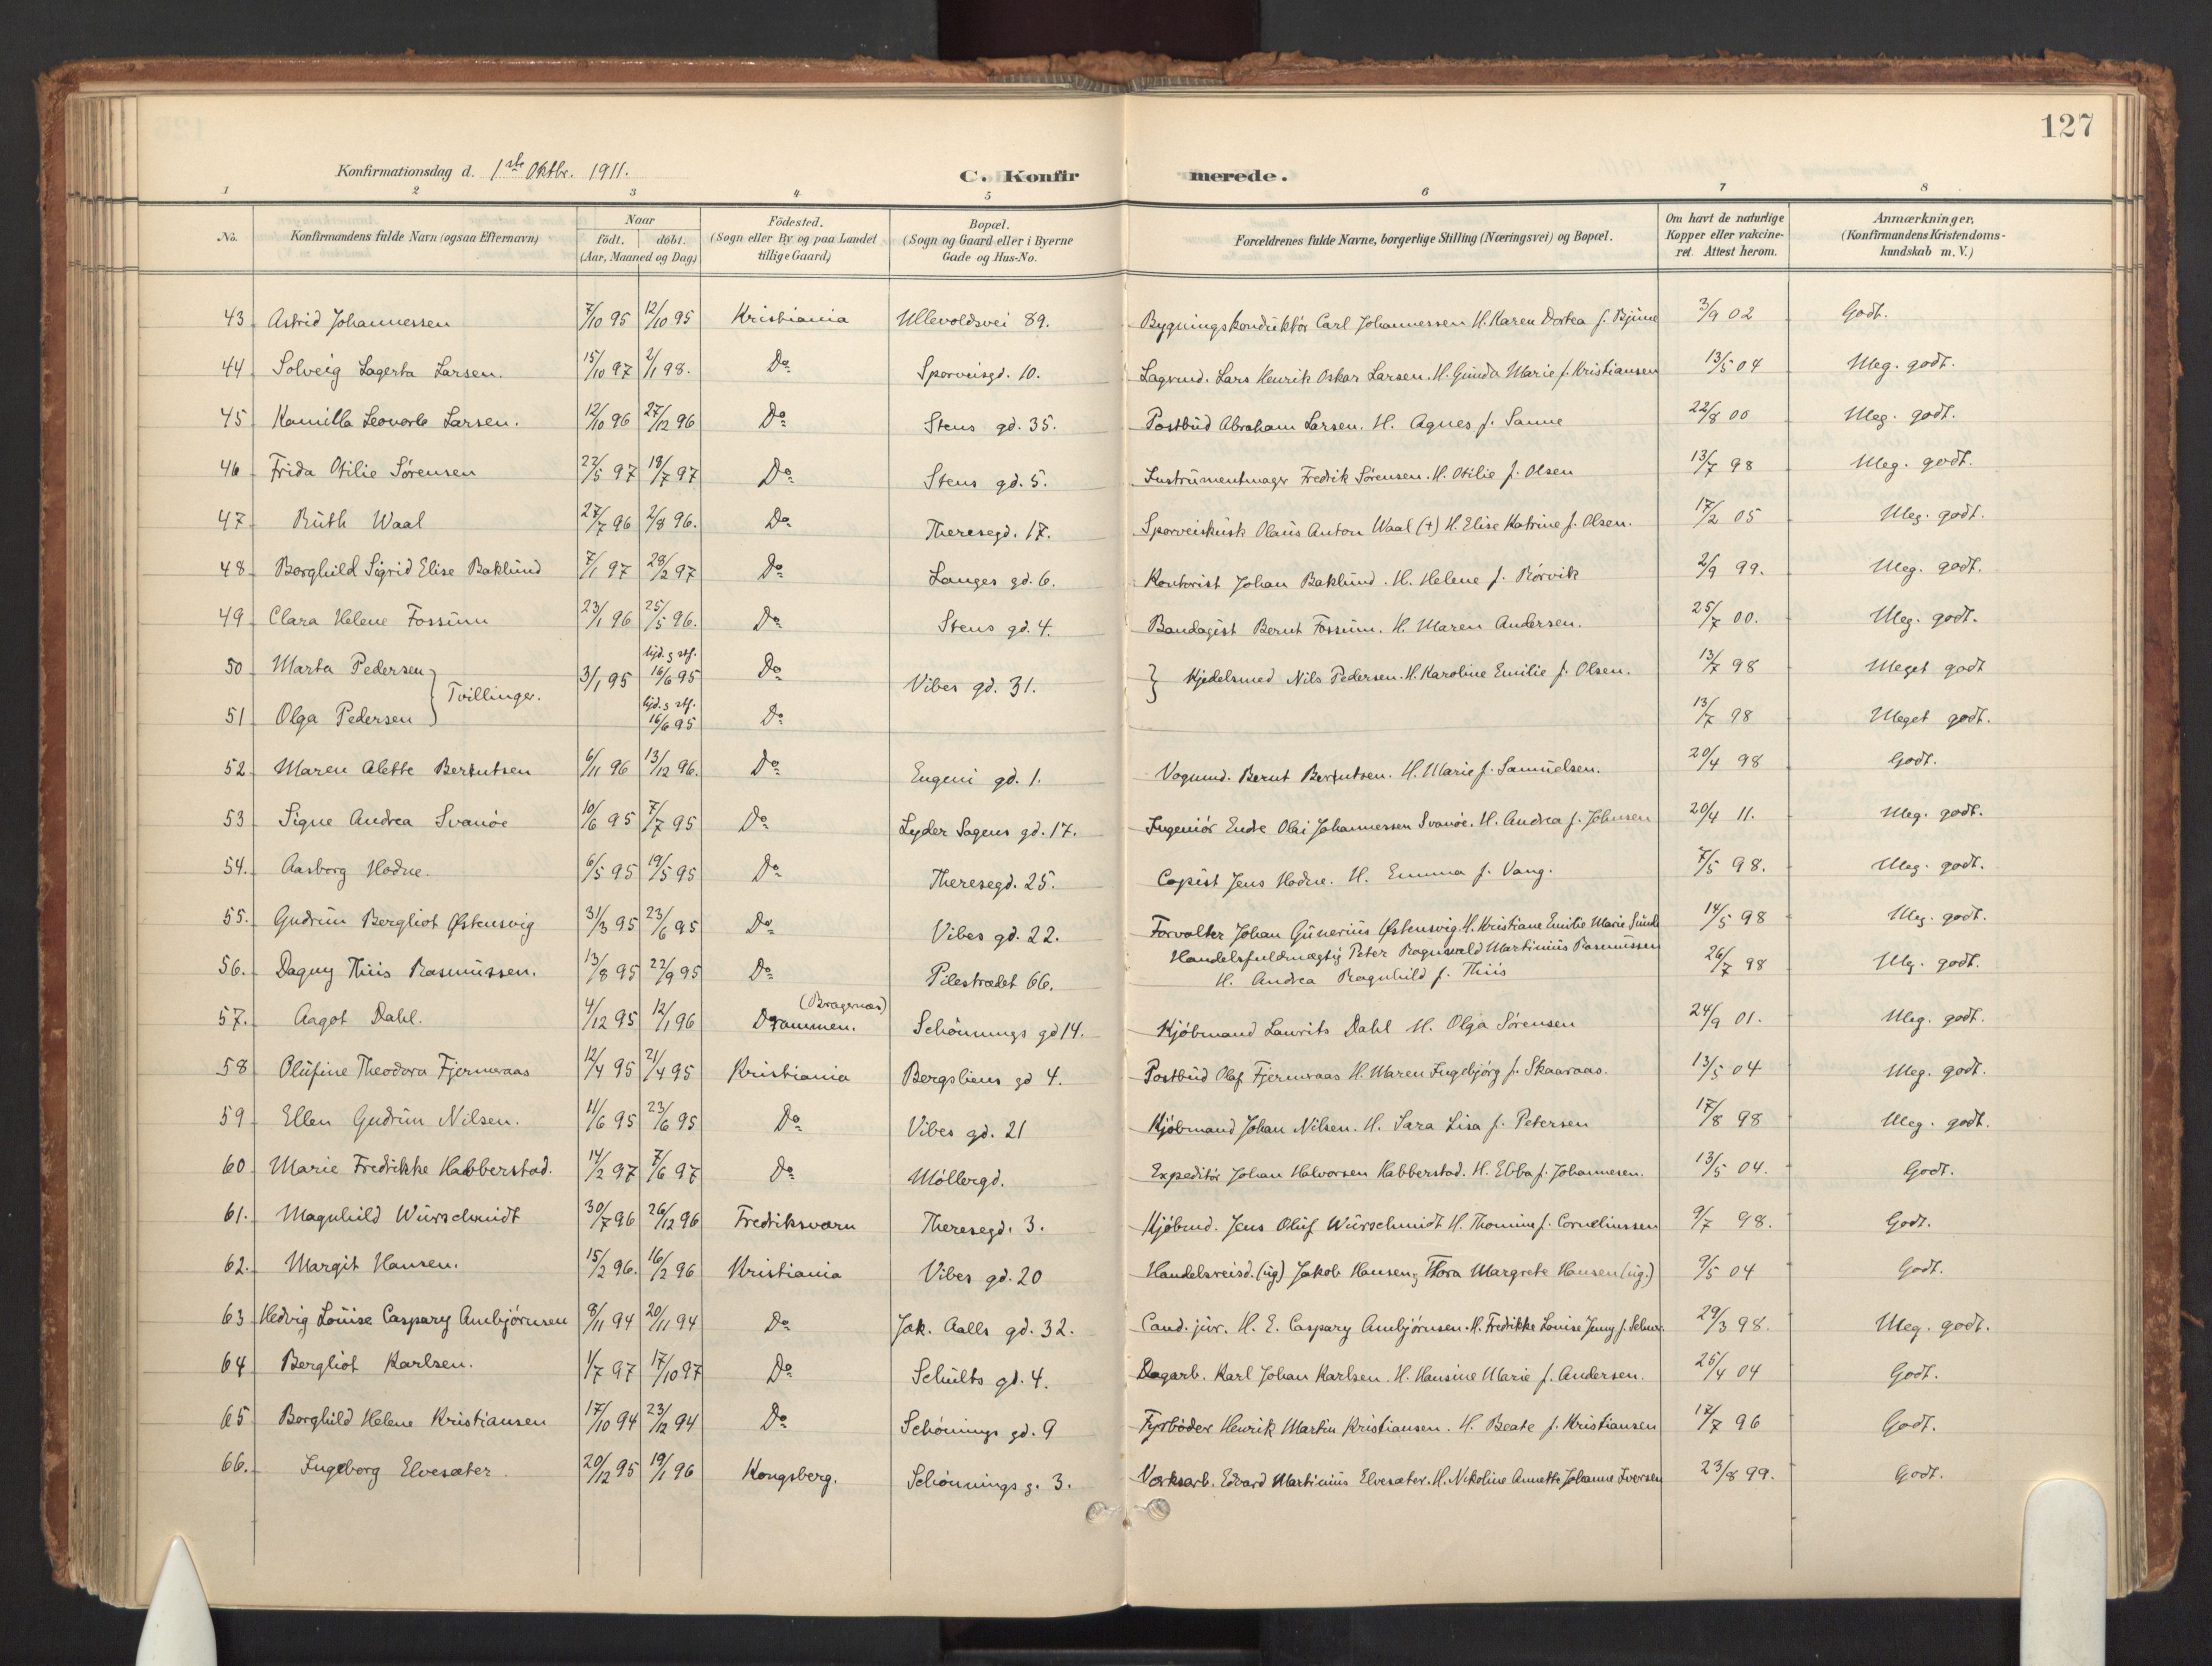 127
Konfirmationsdag d. 1ste Oktbr. 1911. C. Konfirmerede.
1 2 3 4 5 6 7 8
No. Konfirmandens fulde Navn (ogsaa Efternavn) Naar födt. döbt. (Aar, Maaned og Dag) Födested. (Sogn eller By og paa Landet tillige Gaard) Bopæl. (Sogn og Gaard eller i Byerne Gade og Hus-No. Forældrenes fulde Navne, borgerlige Stilling (Næringsvei) og Bopæl. Om havt de naturlige Kopper eller vakcineret. Attest herom. Anmærkninger. (Konfirmandens Kristendomskundskab m. V.)
43 Astrid Johannessen 7/10 95 12/10 95 Kristiania Ullevoldsvei 89. Bygningskonduktör Carl Johannessen H. Karen Dortea f. 3/9 02 Godt.
44 Solveig Lagerta Larsen. 15/10 97 2/1 98. Do Sporveisgd. 10. Lagermd. Lars Henrik Oskar Larsen. H. Gunda Marie f. Kristiansen 13/5 04 Meg. godt.
45 Kamilla Larsen. 12/10 96 27/12 96 Do Stens gd. 35. Postbud Abraham Larsen. H. Agnes f. Sanne 22/8 00 Meg. godt.
46 Frida Otilie Sörensen 22/5 97 18/7 97 Do Stens gd. 5. Instrumentmager Fredrik Sörensen. H. Otilie f. Olsen 13/7 98 Meg. godt.
47 Ruth Waal 27/7 96 2/8 96. Do Theresegd. 17. Sporveiskusk Olaus Anton Waal (+) H. Elise Katrine f. Olsen. 17/2 05 Meg. godt.
48 Borghild Sigrid Elise Baklund 7/1 97 28/2 97 Do Langes gd. 6. Kontorist Johan Baklund. H. Helene f. Rörvik 2/9 99. Meg. godt.
49 Clara Helene Fossum 23/1 96 25/5 96. Do Stens gd. 4. Bandagist Bernt Fossum. H. Maren Andersen. 25/7 00. Meg. godt.
50 Marta Pedersen } Tvillinger. 3/1 95 hjd. stf. 16/6 95 Do Vibes gd. 31. } Kjedelsmed Nils Pedersen. H. Karoline Emilie f. Olsen. 13/7 98 Meget godt
51 Olga Pedersen hjd. stf. 16/6 95 Do 13/7 98 Meget godt.
52 Maren Alette Berntsen 6/11 96 13/12 96. Do Eugeni gd. 1. Vognmd. Bernt Berntsen. H. Marie f. Samuelsen. 20/4 98 Godt.
53 Signe Andrea Svanöe 10/6 95 7/7 95 Do Lyder Sagens gd. 17. Ingeniör Endre Olai Johannessen Svanöe. H. Andrea f. Johnsen 20/4 11. Meg. godt.
54. Aasborg Hodne. 6/5 95 19/5 95 Do Theresegd. 25. Copist Jens Hodne. H. Emma f. Vang. 7/5 98. Meg. godt.
55. Gudrun Bergliot Østensvig 31/3 95 23/6 95 Do Vibes gd. 22. Forvalter Johan Gunerius Østensvig. H. Kristiane Emilie Marie 14/5 98 Meg. godt.
56. Dagny Thiis Rasmussen. 13/8 95 22/9 95 Do Pilestrædet 66. Handelsfuldmægtig Peter Ragnvald Martinius Rasmussen
H. Andrea Ragnhild f. Thiis 26/7 98 Meg. godt.
57. Aagot Dahl. 4/12 95 12/1 96 (Bragernæs) Drammen. Schönnings gd 14. Kjöbmand Laurits Dahl H. Olga Sörensen 24/9 01. Meg. godt.
58 Olufine Theodora Fjermeraas 12/4 95 21/4 95 Kristiania Bergsliens gd 4. Postbud Olaf Fjermeraas H. Maren Ingebjörg f. Skaaraas. 13/5 04 Meg. godt.
59 Ellen Gudrun Nilsen. 11/6 95 23/6 95 Do Vibes gd. 21 Kjöbmand Johan Nilsen. H. Sara Lisa f. Petersen 17/8 98 Meg. godt.
60 Marie Fredrikke Habberstad. 14/2 97 7/6 97 Do Möllergd. Expeditör Johan Halvorsen Habberstad. H. Ebba f. Johannesen. 13/5 04. Godt.
61. Magnhild Würschmidt 30/7 96 26/12 96 Fredriksværn Theresegd. 3. Kjöbmd. Jens Oluf Würschmidt H. Thomine f. Corneliussen 9/7 98. Godt.
62. Margit Hansen. 15/2 96. 16/2 96 Kristiania Vibes gd. 20 Handelsreisd. (ug) Jakob Hansen, Thora Margrete Hansen (ug.) 9/5 04 Godt.
63 Hedvig Louise Caspary Ambjörnsen 8/11 94 20/11 94 Do Jak. Aalls gd. 32. Cand. jur. H. E. Caspary Ambjörnsen. H. Fredrikke Louise Jenny f. 29/3 98. Meg. godt.
64 Bergliot Karlsen. 1/7 97 17/10 97 Do Schults gd. 4. Dagarb. Karl Johan Karlsen. H. Hansine Marie f. Andersen. 25/4 04 Godt.
65 Borghild Helene Kristiansen 17/10 94 23/12 94 Do Schönnings gd. 9 Fyrböder Henrik Martin Kristiansen. H. Beate f. Kristiansen 17/7 96 Godt.
66. Ingeborg Elvesæter. 20/12 95 19/1 96 Kongsberg. Schönnings g. 3. Værksarb. Edvard Martinius Elvesæter. H. Nikoline Annette Johanne Iversen 23/8 99. Godt.